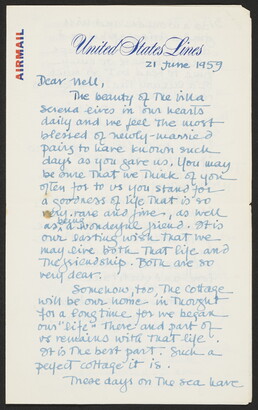 AIRMAIL
United States Lines
21 June 1959
Dear Nell,
The beauty of The Villa
Serena lives in our hearts
daily and we feel the most
blessed of newly-married
pairs to have known such
days as you gave us. You may
be sure that we Think of you
often for to us you stand for
a goodness of life That is so
very rare and fine, as well
as being a wonderful friend. It is
our lasting wish That we
may live both That life and
The friendship. Both are so
very dear.
Somehow, too, The cottage
will be our home in Thought
for a long time for we began
our "life" There and part of
us remains with That life.
It is The best part. Such a
perfect cottage it is.
These days on The sea have